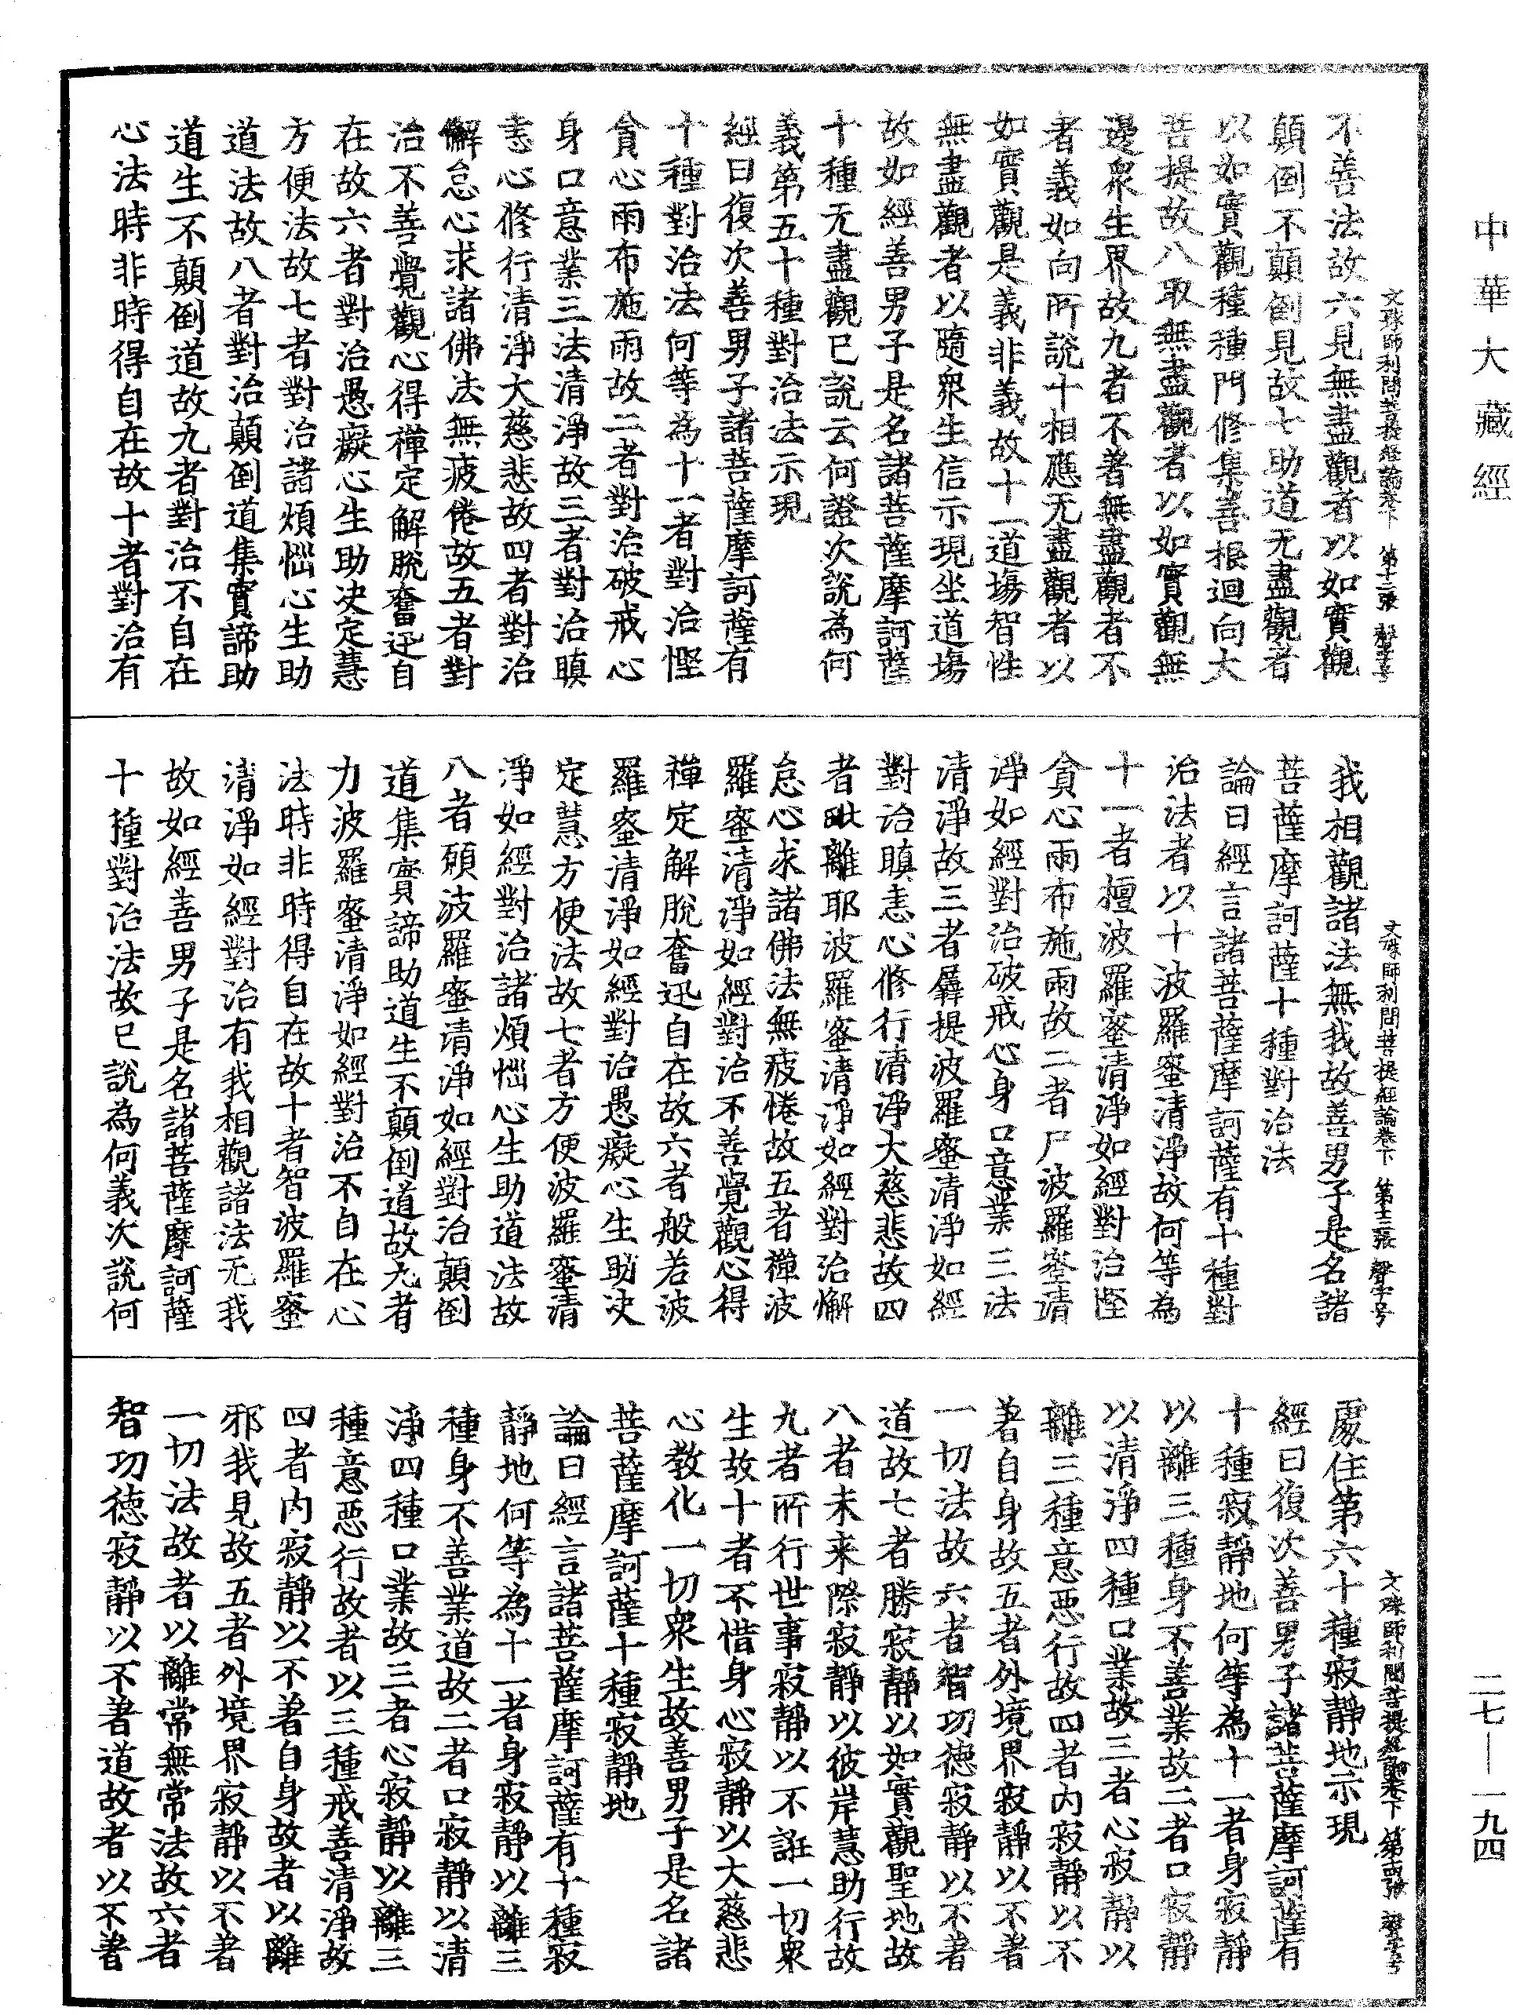 中華大藏經
文殊師利問菩提經論卷下 第十二張 聲字号
不善法故六見無盡觀者以如實觀
顛倒不顛倒見故七助道无盡觀者
以如實觀種種門修集善根迴向大
菩提故八取無盡觀者以如實觀無
邊衆生界故九者不著無盡觀者不
著義如向所說十相應无盡觀者以
如實觀是義非義故十一道場智性
無盡觀者以隨衆生信示現坐道場
故如經善男子是名諸菩薩摩訶薩
十種无盡觀已說云何證次說為何
義第五十種對治法示現
經曰復次善男子諸菩薩摩訶薩有
十種對治法何等為十一者對治慳
貪心雨布施雨故二者對治破戒心
身口意業三法清淨故三者對治瞋
恚心修行清淨大慈悲故四者對治
懈怠心求諸佛法無疲倦故五者對
治不善覺觀心得禪定解脫奮迅自
在故六者對治愚癡心生助決定慧
方便法故七者對治諸煩惱心生助
道法故八者對治顛倒道集實諦助
道生不顛倒道故九者對治不自在
心法時非時得自在故十者對治有
文殊師利問菩提經論卷下 第十三張 聲字号
我相觀諸法無我故善男子是名諸
菩薩摩訶薩十種對治法
論曰經言諸菩薩摩訶薩有十種對
治法者以十波羅蜜清淨故何等為
十一者檀波羅蜜清淨如經對治慳
貪心雨布施雨故二者尸波羅蜜清
淨如經對治破戒心身口意業三法
清淨故三者羼提波羅蜜清淨如經
對治瞋恚心修行清淨大慈悲故四
者毗離耶波羅蜜清淨如經對治懈
怠心求諸佛法無疲倦故五者禪波
羅蜜清淨如經對治不善覺觀心得
禪定解脫奮迅自在故六者般若波
羅蜜清淨如經對治愚癡心生助決
定慧方便法故七者方便波羅蜜清
淨如經對治諸煩惱心生助道法故
八者願波羅蜜清淨如經對治顛倒
道集實諦助道生不顛倒道故九者
力波羅蜜清淨如經對治不自在心
法時非時得自在故十者智波羅蜜
清淨如經對治有我相觀諸法无我
故如經善男子是名諸菩薩摩訶薩
十種對治法故已說為何義次說何
文殊師利問菩提經論卷下 第十四張 聲字号
處住第六十種寂靜地示現
經曰復次善男子諸菩薩摩訶薩有
十種寂靜地何等為十一者身寂靜
以離三種身不善業故二者口寂靜
以清淨四種口業故三者心寂靜以
離三種意惡行故四者內寂靜以不
著自身故五者外境界寂靜以不著
一切法故六者智功德寂靜以不著
道故七者勝寂靜以如實觀聖地故
八者未来際寂靜以彼岸慧助行故
九者所行世事寂靜以不誑一切衆
生故十者不惜身心寂靜以大慈悲
心教化一切衆生故善男子是名諸
菩薩摩訶薩十種寂靜地
論曰經言諸菩薩摩訶薩有十種寂
靜地何等為十一者身寂靜以離三
種身不善業道故二者口寂靜以清
淨四種口業故三者心寂靜以離三
種意惡行故者以三種戒善清淨故
四者內寂靜以不著自身故者以離
邪我見故五者外境界寂靜以不著
一切法故者以離常無常法故六者
智功德寂靜以不著道故者以不著
二七—一九四